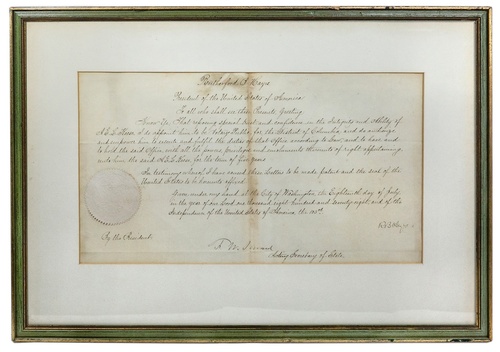 Rutherford B. Hayes
President of the United States of America.
To all who shall see these Presents Greeting:
Know Ye, That reposing special trust and confidence in the Integrity and Ability of
I do appoint him to be Notary Public, for the District of Columbia, and do authorize
and empower him to execute and fulfil the duties of that Office according to law, and to have and
to hold the said Office, with all the powers, privileges and emoluments thereunto of right appertaining
unto him the said for the term of five years.
In testimony whereof, I have caused these Letters to be made patent and the seal of the
United States to be hereunto affixed.
Given under my hand, at the City of Washington, the Eighteenth day of July,
in the year of our Lord one thousand eight hundred and seventy-eight, and of the
Independence of the United States of America the 103rd.
R B Hayes
By the President:
F. W. Seward
Acting Secretary of State.